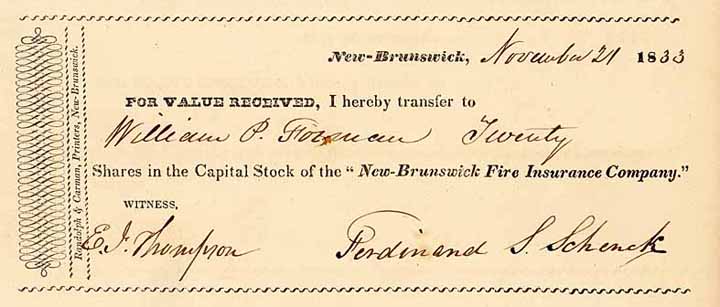 New-Brunswick, November 21 1833
FOR VALUE RECEIVED, I hereby transfer to
William P. Forman Twenty
Shares in the Capital Stock of the "New-Brunswick Fire Insurance Company."
WITNESS,
E. J. Thompson Ferdinand S. Schenck
Randolph & Carman, Printers, New-Brunswick.